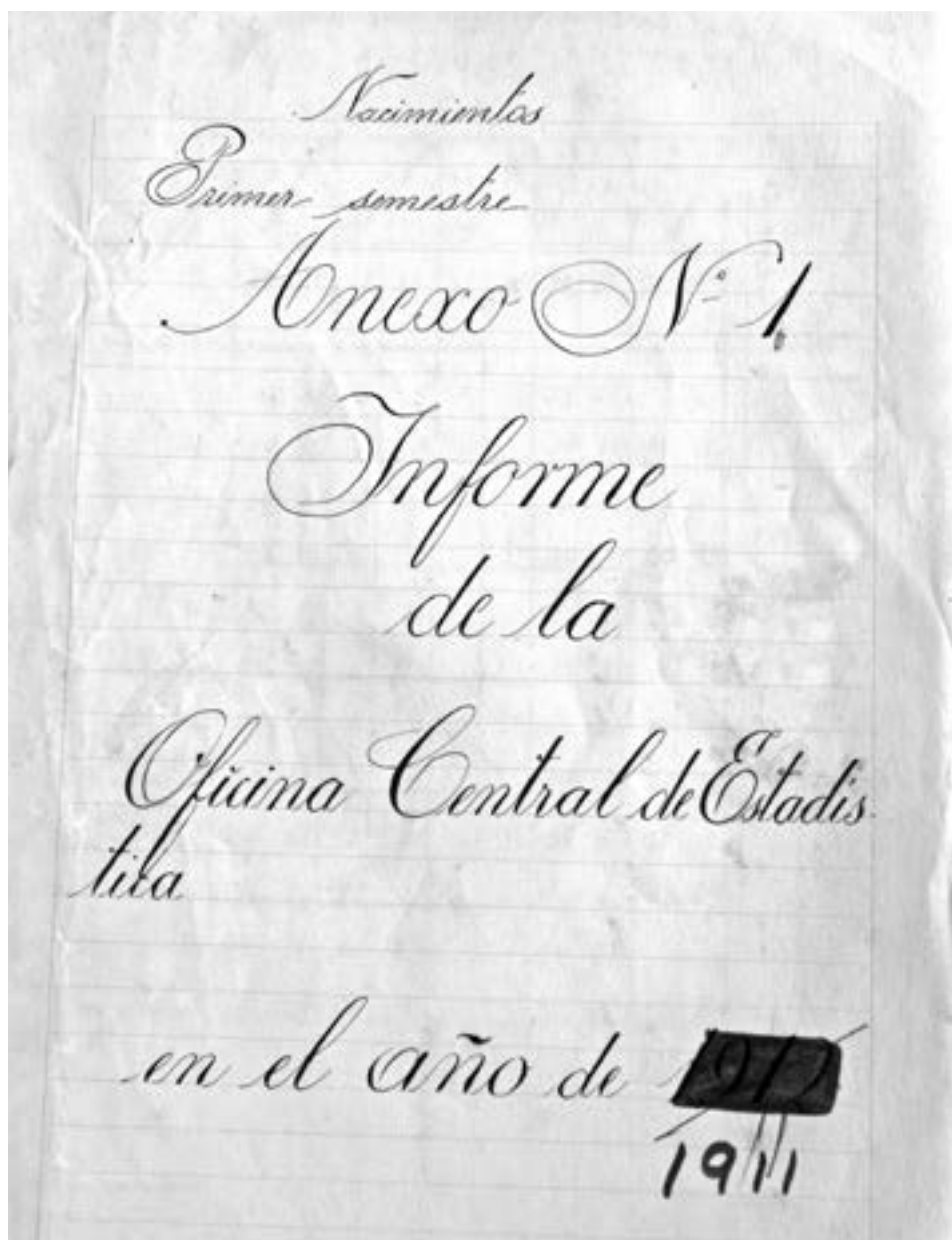 Nacimientos
Primer semestre
Anexo Nº 1.
Informe
de la
Oficina Central de Estadís-
tica
en el año de
1911